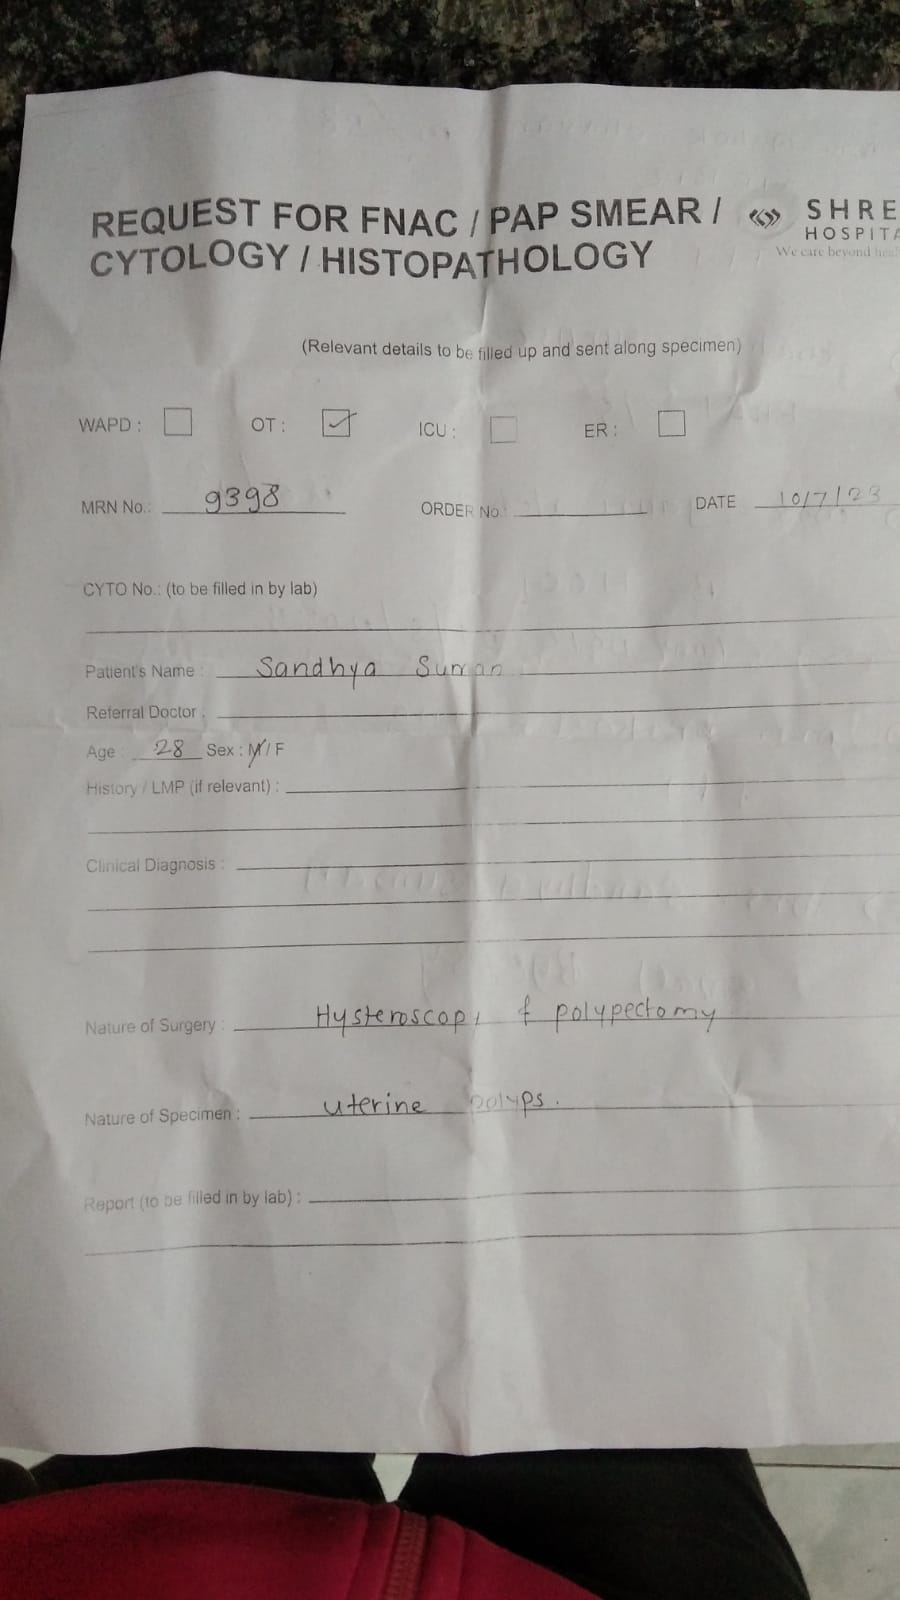 REQUEST FOR FNAC / PAP SMEAR /
CYTOLOGY / HISTOPATHOLOGY
SHRE
HOSPITA
We care beyond heal
(Relevant details to be filled up and sent along specimen)
WAPD : OT : ICU : ER :
MRN No.: 9398 ORDER No. DATE 10/7/23
CYTO No.: (to be filled in by lab)
Patient's Name : Sandhya Suman
Referral Doctor :
Age : 28 Sex : M / F
History / LMP (if relevant) :
Clinical Diagnosis :
Nature of Surgery : Hysteroscopy & polypectomy
Nature of Specimen : uterine polyps.
Report (to be filled in by lab) :